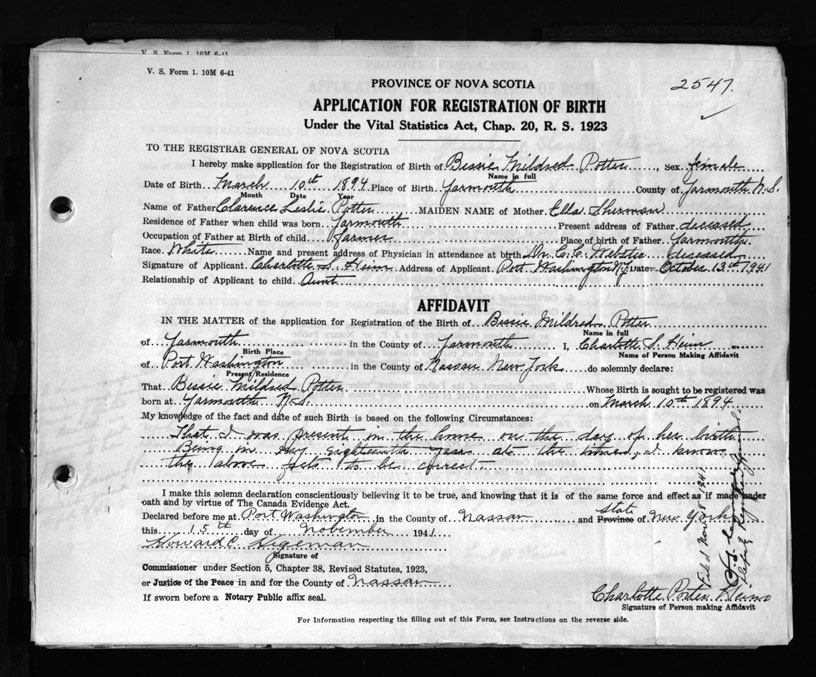 V. S. Form 1. 10M 6-41
V. S. Form 1. 10M 6-41
2547.
PROVINCE OF NOVA SCOTIA
APPLICATION FOR REGISTRATION OF BIRTH
Under the Vital Statistics Act, Chap. 20, R. S. 1923
TO THE REGISTRAR GENERAL OF NOVA SCOTIA
I hereby make application for the Registration of Birth of Bessie Mildred Potter, Sex female
Name in full
Date of Birth March 10th 1894 Place of Birth Yarmouth County of Yarmouth N.S.
Month Date Year
Name of Father Clarence Leslie Potter MAIDEN NAME of Mother Ella Sherman
Residence of Father when child was born Yarmouth Present address of Father deceased
Occupation of Father at Birth of child farmer Place of birth of Father Yarmouth
Race White Name and present address of Physician in attendance at birth Dr. C. C. Webster deceased
Signature of Applicant Charlotte S. Heinn Address of Applicant Port Washington N.Y. Date October 13th 1941
Relationship of Applicant to child Aunt
AFFIDAVIT
IN THE MATTER of the application for Registration of the Birth of Bessie Mildred Potter
Name in full
of Yarmouth in the County of Yarmouth I, Charlotte S. Heinn
Birth Place Name of Person Making Affidavit
of Port Washington in the County of Nassau New York do solemnly declare:
Present Residence
That Bessie Mildred Potter Whose Birth is sought to be registered was
born at Yarmouth N.S. on March 10th 1894
My knowledge of the fact and date of such Birth is based on the following Circumstances:
That I was present in the home on the day of her birth
Being in my Eighteenth year at the time, I know
the above facts to be correct
I make this solemn declaration conscientiously believing it to be true, and knowing that it is of the same force and effect as if made under
oath and by virtue of The Canada Evidence Act.
Declared before me at Port Washington in the County of Nassau and State Province of New York
this 15th day of November 1941
Howard C. Hegeman
Signature of
Commissioner under Section 5, Chapter 38, Revised Statutes, 1923,
or Justice of the Peace in and for the County of Nassau
If sworn before a Notary Public affix seal.
Filed Nov 1941
Charlotte Heinn
Signature of Person making Affidavit
For Information respecting the filling out of this Form, see Instructions on the reverse side.